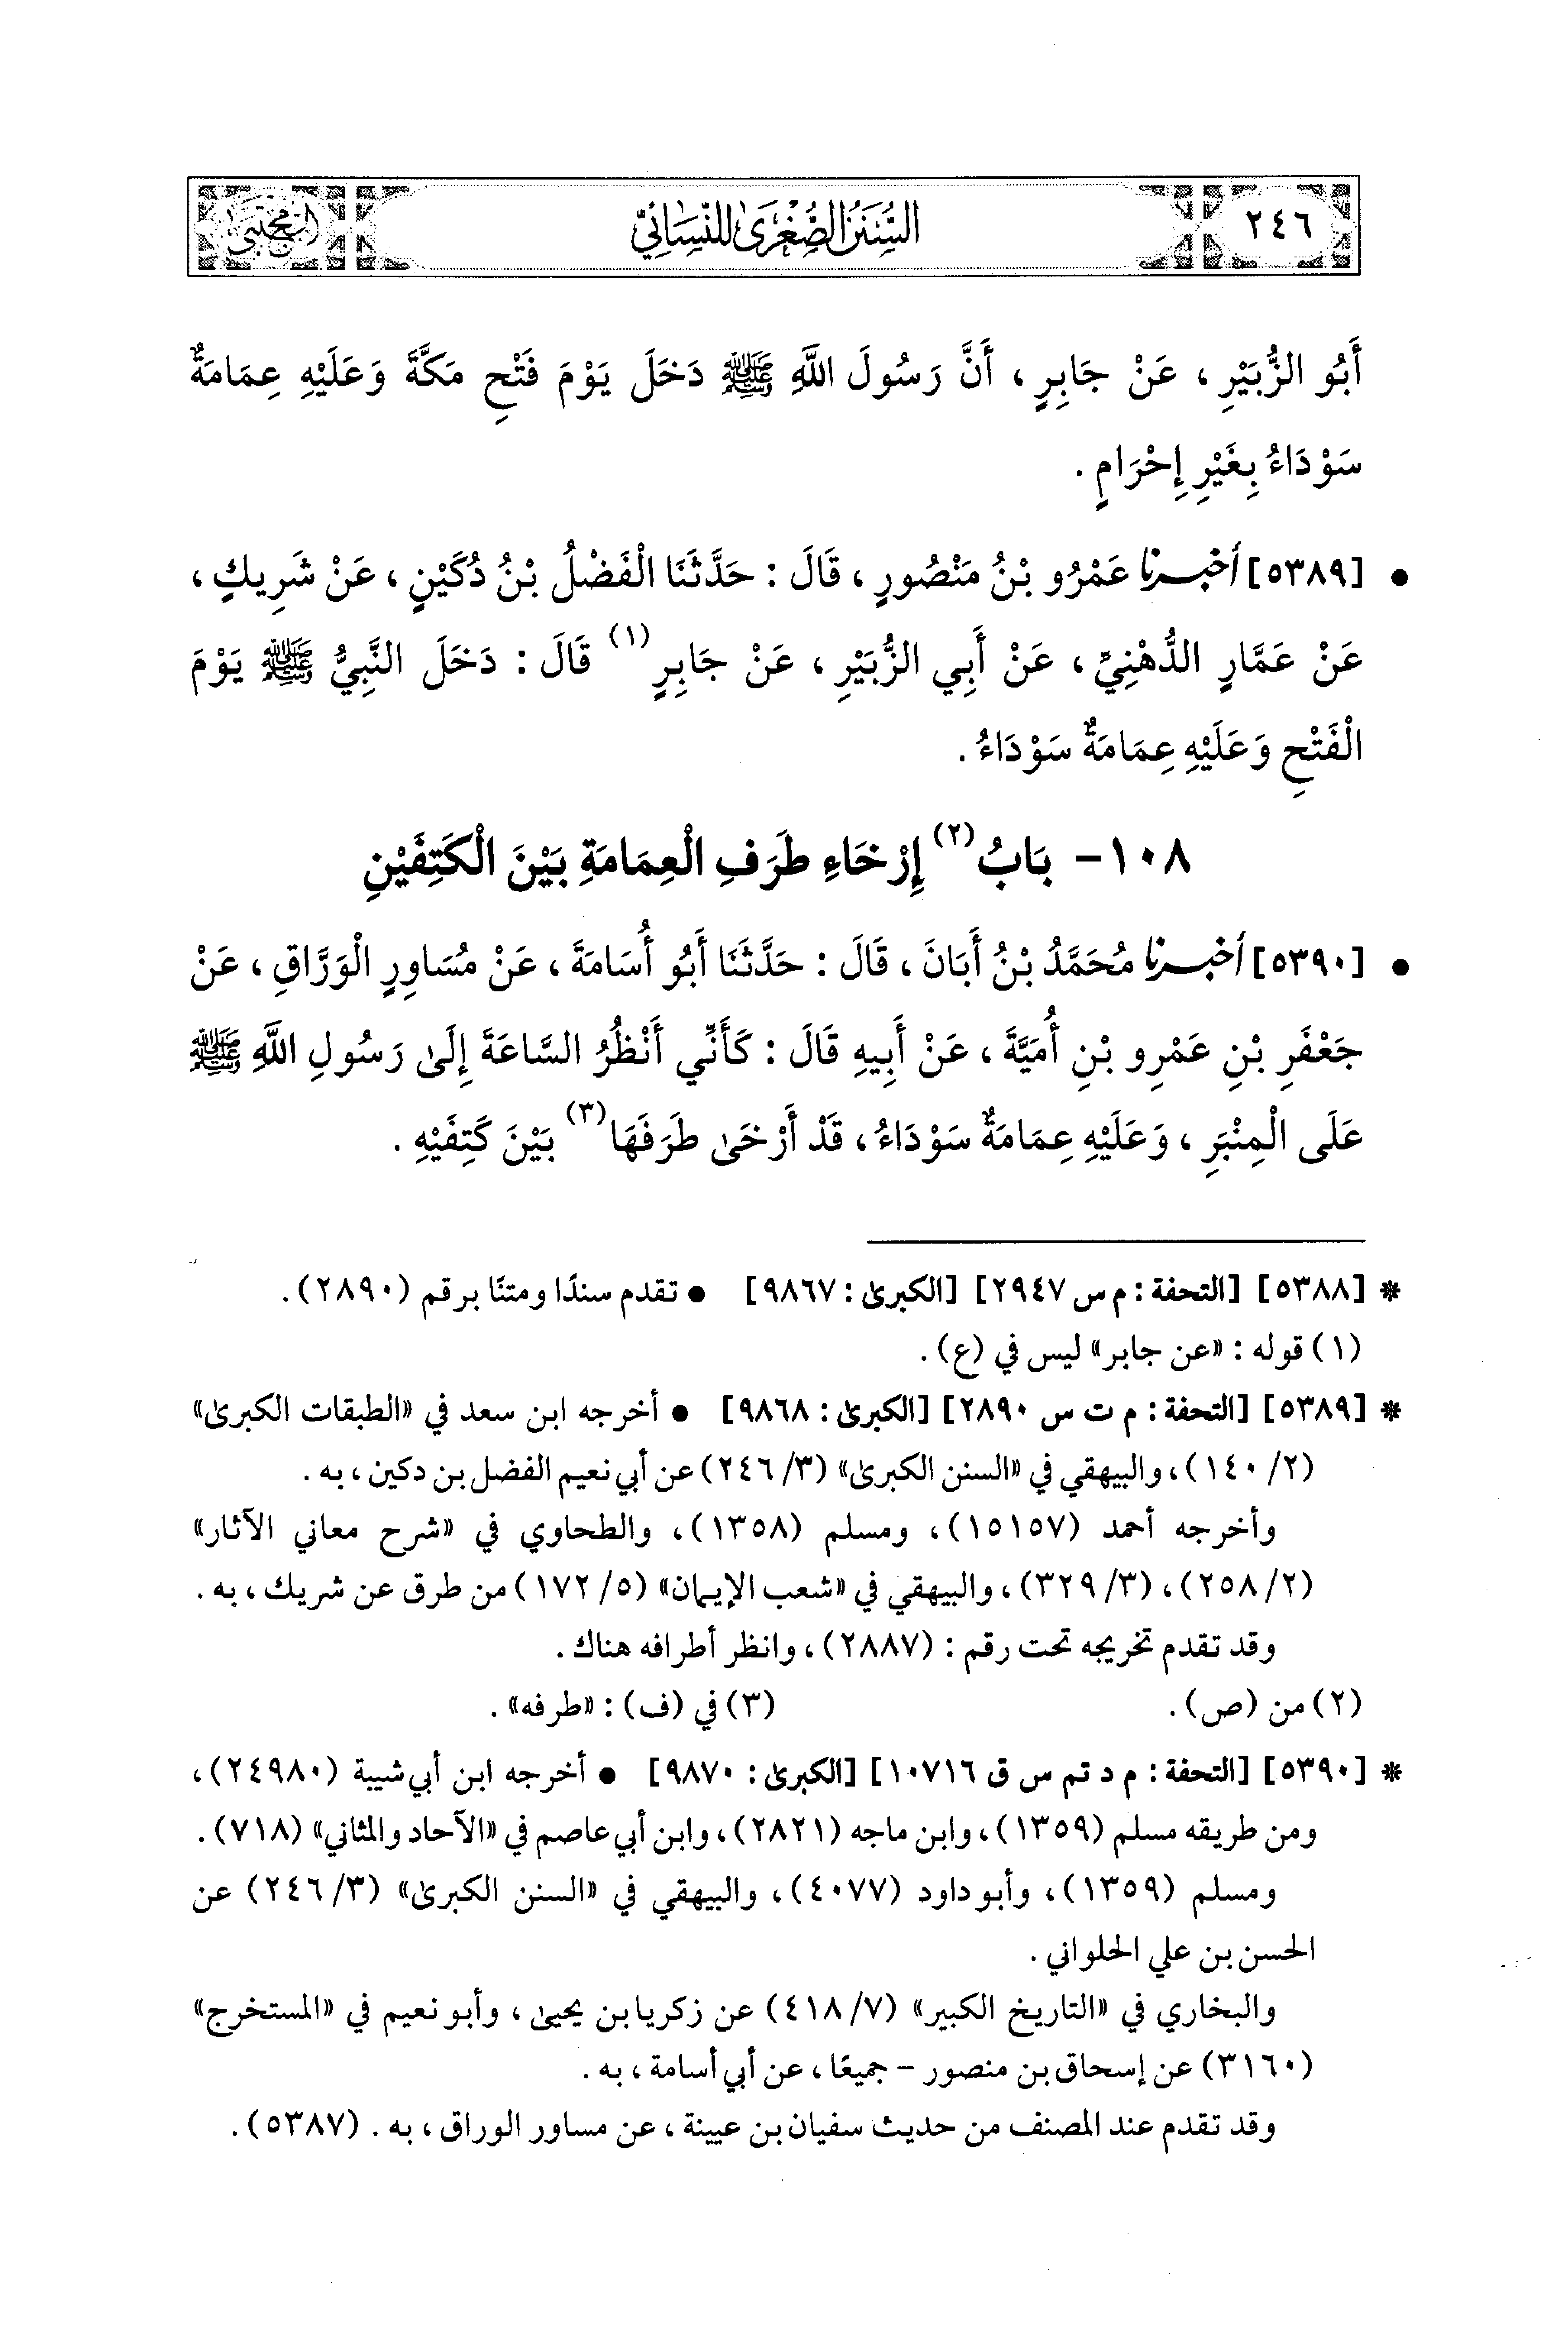 ٢٤٦
السُّنَنُ الصُّغْرَىٰ لِلنَّسَائِيِّ
المجتبى
أَبُو الزُّبَيْرِ ، عَنْ جَابِرٍ ، أَنَّ رَسُولَ اللَّهِ ﷺ دَخَلَ يَوْمَ فَتْحِ مَكَّةَ وَعَلَيْهِ عِمَامَةٌ
سَوْدَاءُ بِغَيْرِ إِحْرَامٍ .
• [٥٣٨٩] أَخْبَرَنَا عَمْرُو بْنُ مَنْصُورٍ ، قَالَ : حَدَّثَنَا الْفَضْلُ بْنُ دُكَيْنٍ ، عَنْ شَرِيكٍ ،
عَنْ عَمَّارٍ الدُّهْنِيِّ ، عَنْ أَبِي الزُّبَيْرِ ، عَنْ جَابِرٍ (١) قَالَ : دَخَلَ النَّبِيُّ ﷺ يَوْمَ
الْفَتْحِ وَعَلَيْهِ عِمَامَةٌ سَوْدَاءُ .
١٠٨ - بَابُ (٢) إِرْخَاءِ طَرَفِ الْعِمَامَةِ بَيْنَ الْكَتِفَيْنِ
• [٥٣٩٠] أَخْبَرَنَا مُحَمَّدُ بْنُ أَبَانَ ، قَالَ : حَدَّثَنَا أَبُو أُسَامَةَ ، عَنْ مُسَاوِرٍ الْوَرَّاقِ ، عَنْ
جَعْفَرِ بْنِ عَمْرِو بْنِ أُمَيَّةَ ، عَنْ أَبِيهِ قَالَ : كَأَنِّي أَنْظُرُ السَّاعَةَ إِلَىٰ رَسُولِ اللَّهِ ﷺ
عَلَى الْمِنْبَرِ ، وَعَلَيْهِ عِمَامَةٌ سَوْدَاءُ ، قَدْ أَرْخَىٰ طَرَفَهَا (٣) بَيْنَ كَتِفَيْهِ .
* [٥٣٨٨] [التحفة : م س ٢٩٤٧] [الكبرىٰ : ٩٨٦٧] • تقدم سندًا ومتنًا برقم (٢٨٩٠) .
(١) قوله : «عن جابر» ليس في (ع) .
* [٥٣٨٩] [التحفة : م ت س ٢٨٩٠] [الكبرىٰ : ٩٨٦٨] • أخرجه ابن سعد في «الطبقات الكبرىٰ»
(٢/ ١٤٠) ، والبيهقي في «السنن الكبرىٰ» (٣/ ٢٤٦) عن أبي نعيم الفضل بن دكين ، به .
وأخرجه أحمد (١٥١٥٧) ، ومسلم (١٣٥٨) ، والطحاوي في «شرح معاني الآثار»
(٢/ ٢٥٨) ، (٣/ ٣٢٩) ، والبيهقي في «شعب الإيمان» (٥/ ١٧٢) من طرق عن شريك ، به .
وقد تقدم تخريجه تحت رقم : (٢٨٨٧) ، وانظر أطرافه هناك .
(٢) من (ص) . (٣) في (ف) : «طرفه» .
* [٥٣٩٠] [التحفة : م د تم س ق ١٠٧١٦] [الكبرىٰ : ٩٨٧٠] • أخرجه ابن أبي شيبة (٢٤٩٨٠) ،
ومن طريقه مسلم (١٣٥٩) ، وابن ماجه (٢٨٢١) ، وابن أبي عاصم في «الآحاد والمثاني» (٧١٨) .
ومسلم (١٣٥٩) ، وأبو داود (٤٠٧٧) ، والبيهقي في «السنن الكبرىٰ» (٣/ ٢٤٦) عن
الحسن بن علي الحلواني .
والبخاري في «التاريخ الكبير» (٧/ ٤١٨) عن زكريا بن يحيىٰ ، وأبو نعيم في «المستخرج»
(٣١٦٠) عن إسحاق بن منصور - جميعًا ، عن أبي أسامة ، به .
وقد تقدم عند المصنف من حديث سفيان بن عيينة ، عن مساور الوراق ، به . (٥٣٨٧) .